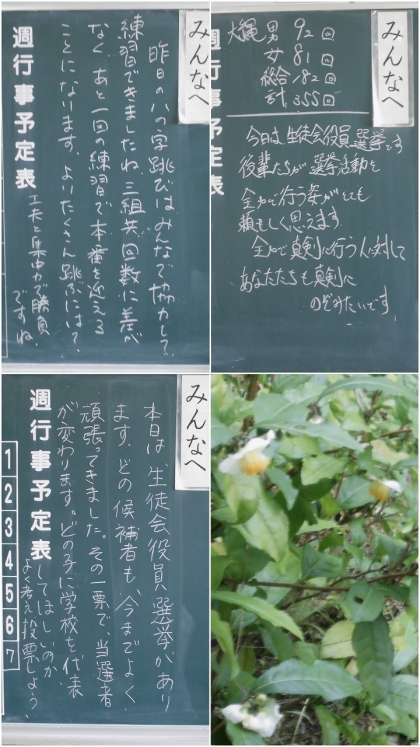 みんなへ
昨日の八の字跳びはみんなで協力して
練習できましたね。三組共、回数に差が
なく、あと一回の練習で本番を迎える
ことになります。よりたくさん跳ぶには？
工夫と集中力で勝負
ですね。
週行事予定表
みんなへ
大縄 男 92回
女 81回
総合 182回
計 355回
今日は、生徒会役員選挙です
後輩たちが選挙活動を
全力で行う姿がとても
頼もしく思えます。
全力で真剣に行う人に対して
あなたたちも真剣に
のぞみたいです
週行事予定表
みんなへ
本日は生徒会役員選挙があり
ます。どの候補者も、今までよく
頑張ってきました。その一票で、当選者
が変わります。どの子に学校を代表
してほしいのか
よく考え投票しよう。
週行事予定表
1
2
3
4
5
6
7